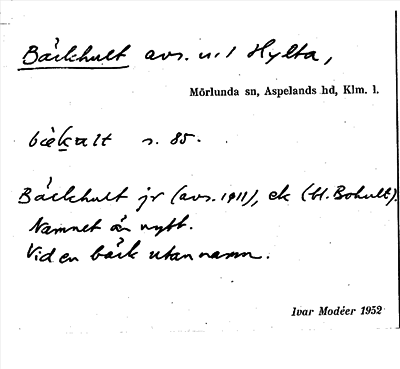 Bäckhult avs. u. 1 Hylta,
Mörlunda sn, Aspelands hd, Klm. l.
bækalt s. 85.
Bäckhult jr (avs. 1911), ek (bl. Bohult).
Namnet är nytt.
Vid en bäck utan namn.
Ivar Modéer 1952